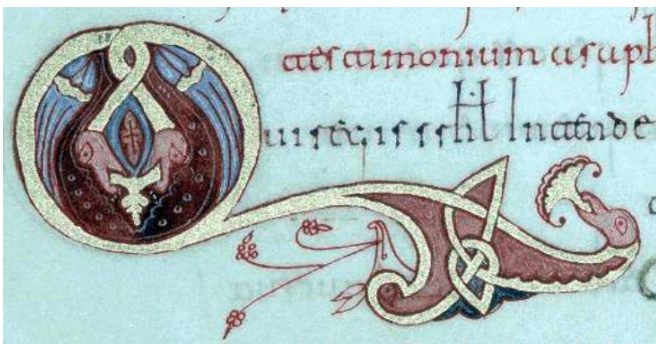 testimonium asaph
Qui regis isrhl Intende